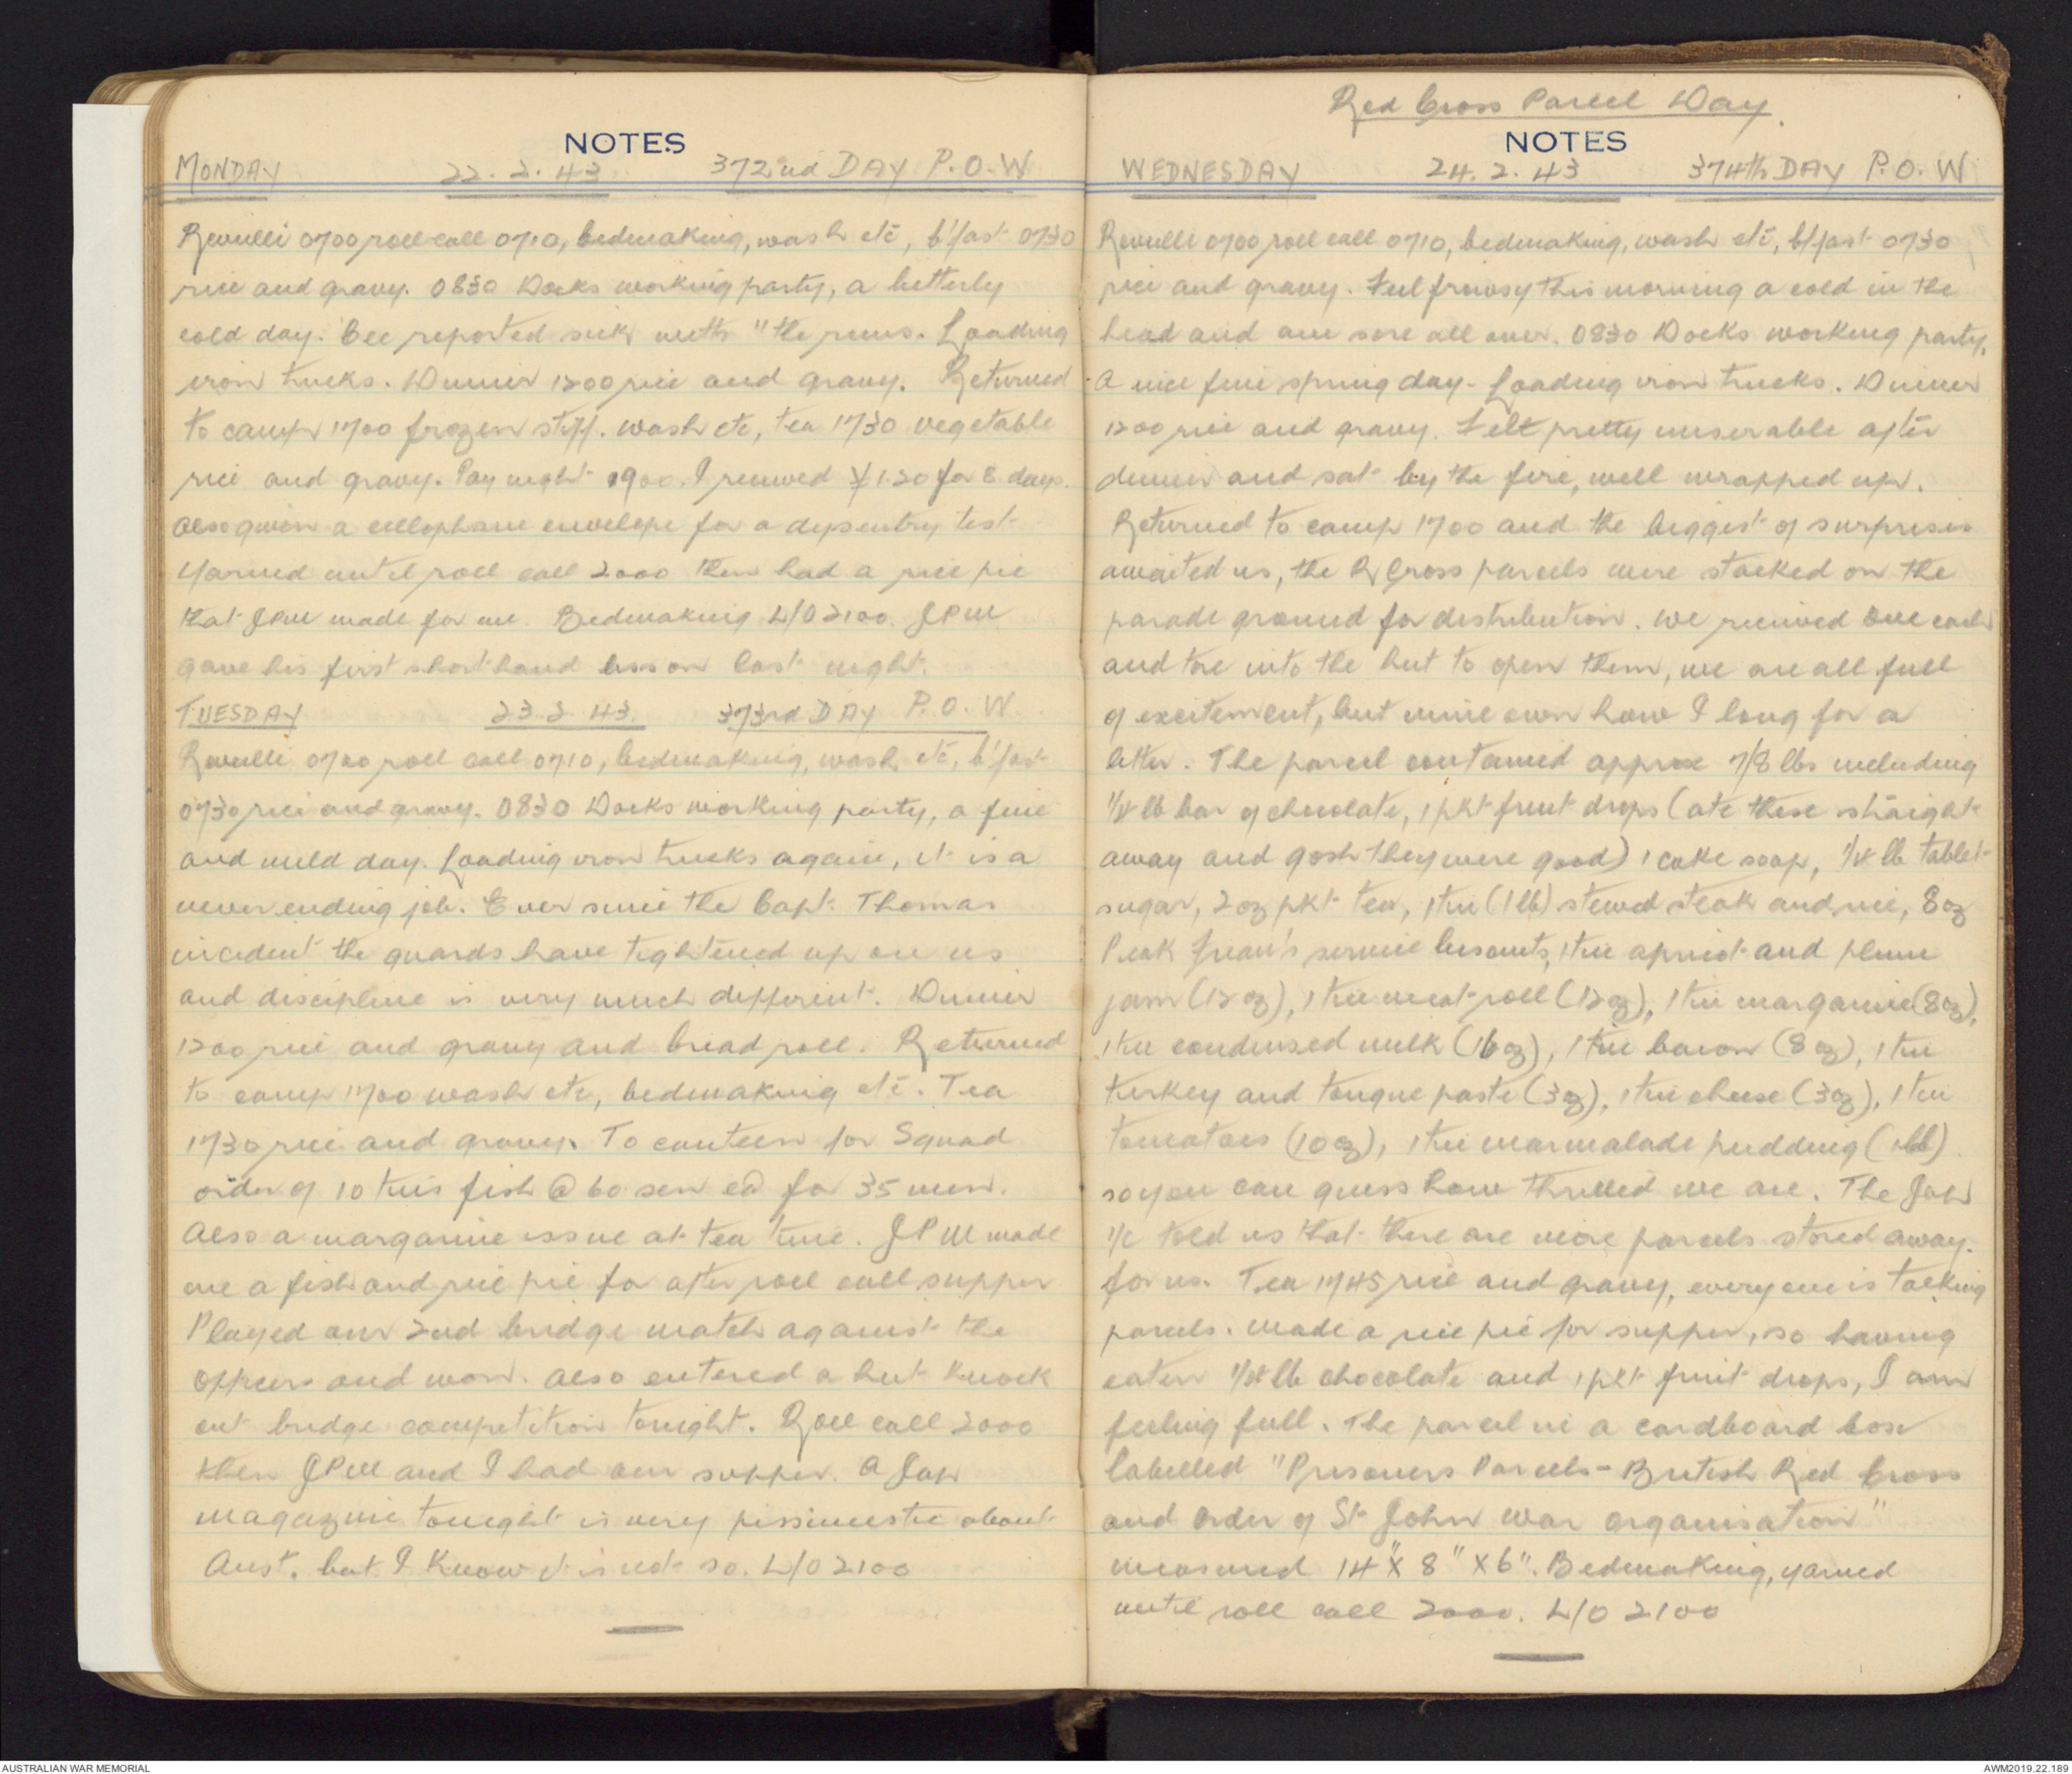 NOTES
MONDAY 22.2.43 372nd DAY P.O.W
Reveille 0700 roll call 0710, bedmaking, wash etc, b'fast 0730
rice and gravy. 0830 Docks working party, a bitterly
cold day. Cec reported sick with "the runs. Loading
iron trucks. Dinner 1200 rice and gravy. Returned
to camp 1700 frozen stiff. Wash etc, tea 1730 vegetable
rice and gravy. Pay night 1900. I received ¥1.20 for 8 days.
Also given a cellophane envelope for a dysentry test
Yarned until roll call 2000 then had a rice pie
that JPM made for me. Bedmaking L/O 2100. JPM
gave his first shorthand lesson last night.
TUESDAY 23.2.43. 373rd DAY P.O.W.
Reveille 0700 roll call 0710, bedmaking, wash etc, b'fast
0730 rice and gravy. 0830 Docks working party, a fine
and mild day. Loading iron trucks again, it is a
never ending job. Ever since the Capt. Thomas
incident the guards have tightened up on us
and discipline is very much different. Dinner
1200 rice and gravy and bread roll. Returned
to camp 1700 wash etc, bedmaking etc. Tea
1730 rice and gravy. To canteen for Squad
order of 10 tins fish @ 60 sen ea for 35 men.
Also a margarine issue at tea time. JPM made
me a fish and rice pie for after roll call supper
Played our 2nd bridge match against the
officers and won. Also entered a hut knock
out bridge competition tonight. Roll call 2000
then JPM and I had our supper. A Jap
magazine tonight is very pissimestic about
Aust. but I know it is not so. L/O 2100
Red Cross Parcel Day.
NOTES
WEDNESDAY 24.2.43 374th DAY P.O.W
Reveille 0700 roll call 0710, bedmaking, wash etc, b/fast 0730
rice and gravy. Feel frowsy this morning a cold in the
head and am sore all over. 0830 Docks working party,
A nice fine spring day. Loading iron trucks. Dinner
1200 rice and gravy. Felt pretty miserable after
dinner and sat by the fire, well wrapped up.
Returned to camp 1700 and the biggest of surprises
awaited us, the R Cross parcels were stacked on the
parade ground for distribution. We received one each
and tore into the hut to open them, we are all full
of excitement, but mine own how I long for a
letter. The parcel contained approx 7/8 lbs including
1/4 lb bar of chocolate, 1 pkt fruit drops (ate these straight
away and gosh they were good) 1 cake soap, 1/4 lb tablet
sugar, 2 oz pkt tea, 1 tin (1 lb) stewed steak and rice, 8 oz
Peak Frean's service biscuits, 1 tin apricot and plum
jam (12 oz), 1 tin meat roll (12 oz), 1 tin margarine (8 oz),
1 tin condensed milk (16 oz), 1 tin bacon (8 oz), 1 tin
turkey and tongue paste (3 oz), 1 tin cheese (3 oz), 1 tin
tomatoes (10 oz), 1 tin marmalade pudding (1 lb)
so you can guess how thrilled we are. The Jap
I/C told us that there are more parcels stored away.
for us. Tea 1745 rice and gravy, everyone is talking
parcels. Made a rice pie for supper, so having
eaten 1/4 lb chocolate and 1 pkt fruit drops, I am
feeling full. The parcel in a cardboard box
labelled "Prisoners Parcels - British Red Cross
and Order of St John War organisation"
measured 14" X 8" X 6". Bedmaking, yarned
until roll call 2000. L/O 2100
AUSTRALIAN WAR MEMORIAL
AWM2019.22.189